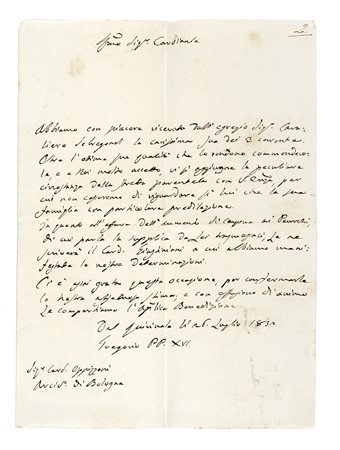 2.
Sig.r Cardinale
Abbiamo con piacere ricevuto dall'egregio Sig.r Cava-
liere la carissima Sua dei 2. corrente.
Oltre l'ottime sue qualità che lo rendono commendevo-
le, e a Noi molto accetto, vi si aggiunge la peculiare
circostanza della stretta parentela con
cui non cesseremo di riguardare sì lui che la sua
famiglia con particolare predilezione.
In quanto all'affare dell'
di cui parla la supplica da Lei , Le ne
scriverà il Card. a cui abbiamo mani-
festate le nostre determinazioni.
Ci è assai grata questa occasione, per confermarle
la nostra stima, e con effusione di animo
Le compartiamo l'Aplica Benedizione
Dal Quirinale li Luglio 183
Gregorio PP. XVI.
Sig.r Card. Oppizzoni
Arciv.o di Bologna